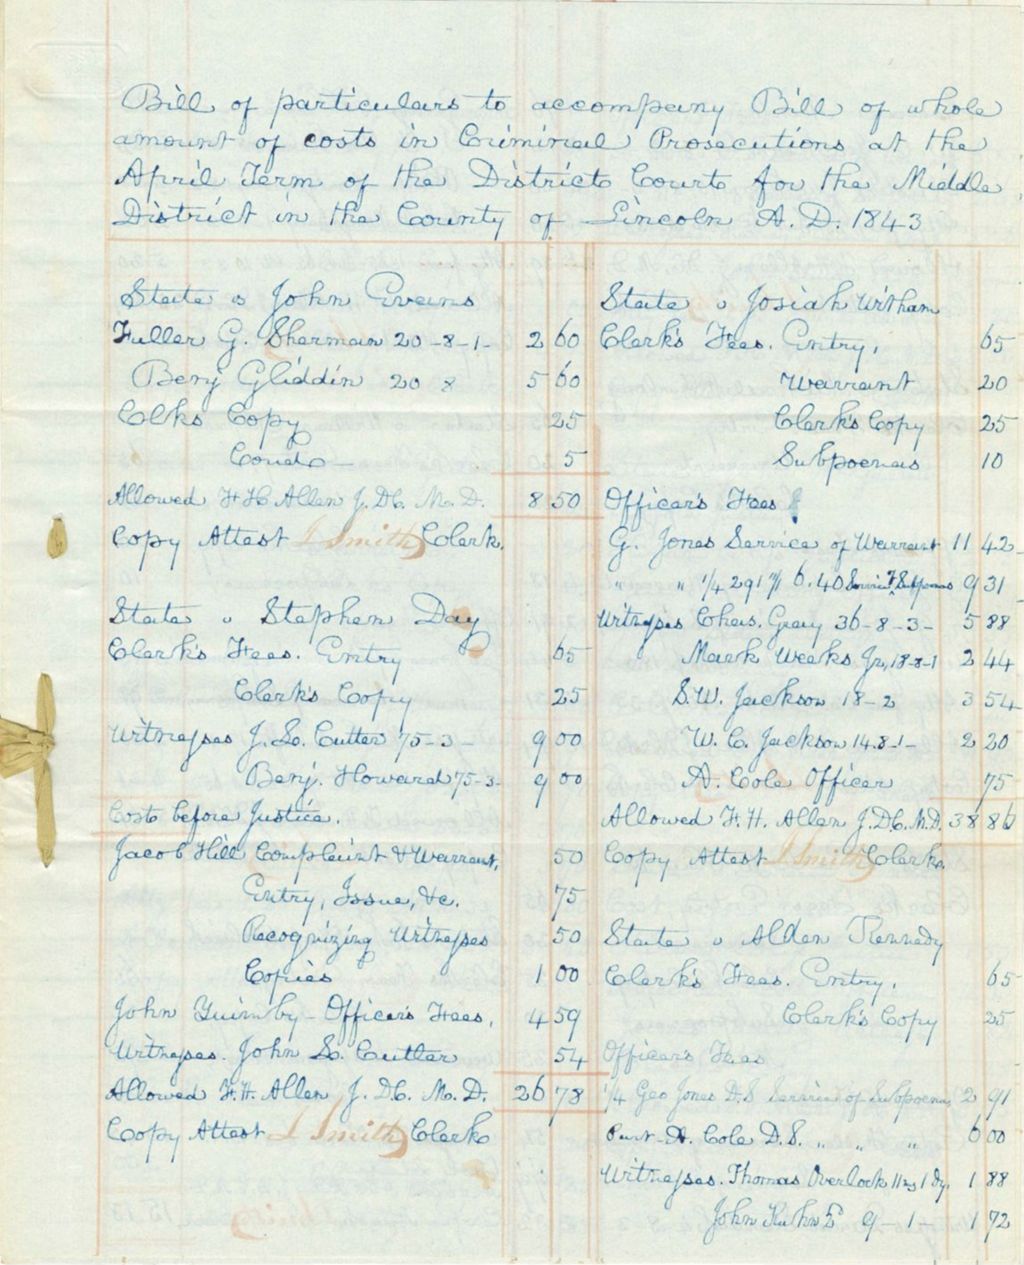 Bill of particulars to accompany Bill of whole
amount of costs in Criminal Prosecutions at the
April Term of the District Court for the Middle
District in the County of Lincoln A. D. 1843
State v John Evans
Fuller G. Sherman 20-8-1- 2 60
Benj Gliddin 20 8 5 60
Clks Copy 25
Cond 5
Allowed F H Allen J. D.C. M. D. 8 50
Copy Attest J Smith Clerk.
State v Stephen Day
Clerk's Fees. Entry 65
Clerk's Copy 25
Witnesses J. L. Cutter 75-3- 9 00
Benj. Howard 75-3- 9 00
Costs before Justice.
Jacob Hill Complaint & Warrant, 50
Entry, Issue, &c. 75
Recognizing Witnesses 50
Copies 1 00
John Quimby - Officer's Fees, 4 59
Witnesses. John L. Cutter 54
Allowed F. H. Allen J. D.C. M. D. 26 78
Copy Attest J Smith Clerk
State v Josiah Witham
Clerk's Fees. Entry, 65
Warrant 20
Clerk's Copy 25
Subpoenas 10
Officer's Fees
G. Jones Service of Warrant 11 42
" " 1/4 291 6.40 Service of Subpoenas 9 31
Witnesses Chas. Gray 36-8-3- 5 88
Mark Weeks Jr, 18-8-1 2 44
S. W. Jackson 18-2 3 54
W. C. Jackson 14.8-1- 2 20
A. Cole Officer 75
Allowed F. H. Allen J. D.C. M.D. 38 86
Copy Attest J Smith Clerk.
State v Alden Kennedy
Clerk's Fees. Entry, 65
Clerk's Copy 25
Officer's Fees
1/4 Geo Jones D.S Service of Subpoenas 2 91
Part-A. Cole D.S. " " 6 00
Witnesses. Thomas Overlock 11 ms 1 Dy. 1 88
John 9 - 1 - 1 72